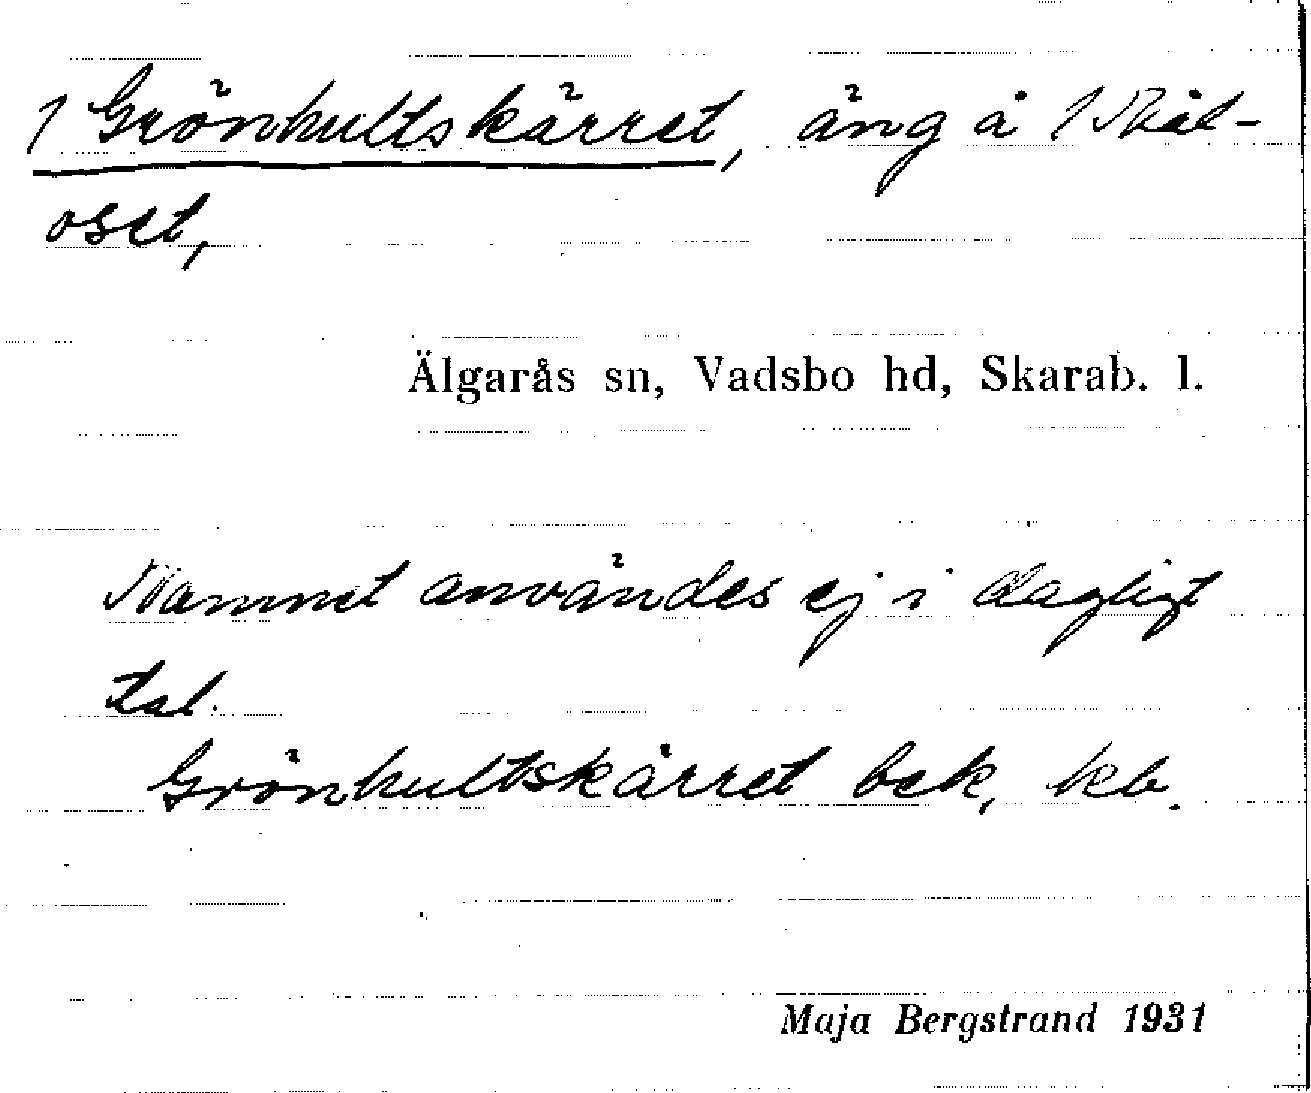 1 Grönhultskärret, äng å 1 Skål-
oset,
Älgarås sn, Vadsbo hd, Skarab. l.
Namnet användes ej i dagligt
tal.
Grönhultskärret bek, kb.
Maja Bergstrand 1931